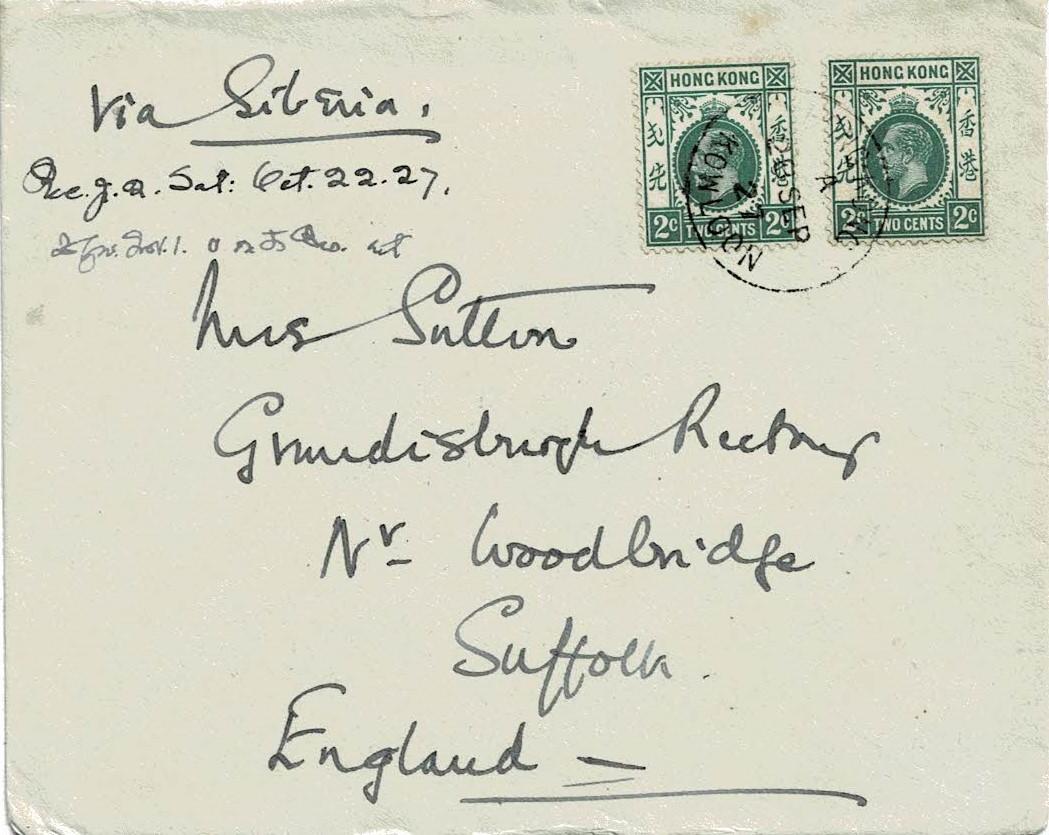 Via Siberia.
Rec. g. a. Sat: Oct. 22. 27.
Nov. 1.
HONG KONG
香港
2c TWO CENTS 2c
HONG KONG
香港
2c TWO CENTS 2c
KOWLOON
A
SEP
27
Mrs Sutton
Grundisburgh Rectory
Nr Woodbridge
Suffolk.
England